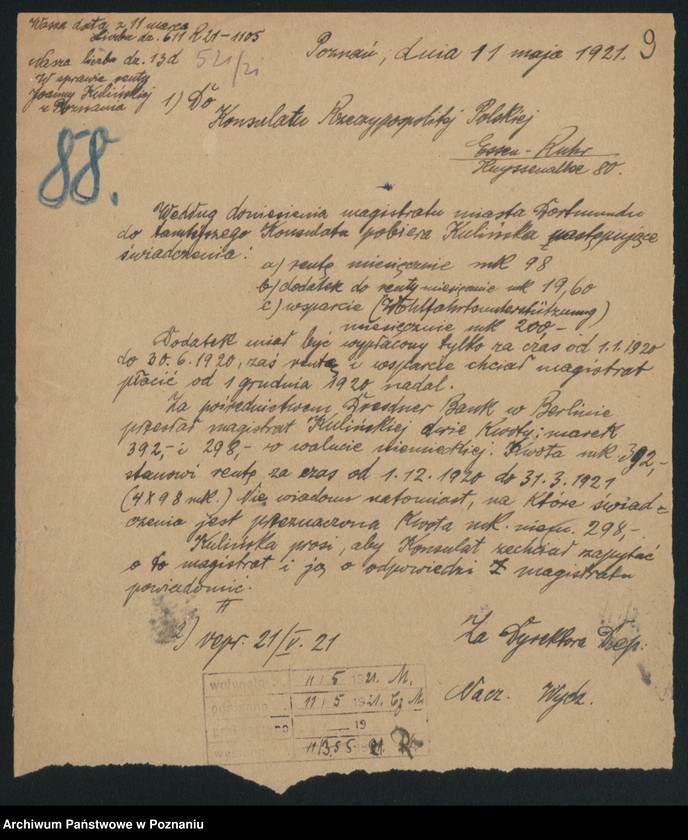 Wasza data z 11 marca
Liczba dz. 611 R 21-1105
Nasza liczba dz. 13d 521/21
W sprawie renty
Joanny Kulińskiej
z Poznania
Poznań, dnia 11 maja 1921. 9
1) Do
Konsulatu Rzeczypospolitej Polskiej
Essen-Ruhr
Huyssenallee 80.
88.
Według doniesienia magistratu miasta Dortmundu
do tamtejszego Konsulatu pobiera Kulińska następujące
świadczenia:
a) rentę miesięcznie mk 98
b) dodatek do renty miesięcznie mk 19,60
c) wsparcie (Wohlfahrtsunterstützung)
miesięcznie mk 200,-
Dodatek miał być wypłacony tylko za czas od 1.1.1920
do 30.6.1920, zaś rentę i wsparcie chciał magistrat
płacić od 1 grudnia 1920 nadal.
Za pośrednictwem Dresdner Bank w Berlinie
przesłał magistrat Kulińskiej dwie kwoty: marek
392,- i 298,- w walucie niemieckiej. Kwota mk 392,-
stanowi rentę za czas od 1.12.1920 do 31.3.1921
(4 x 98 mk.) Nie wiadomo natomiast, na które świad=
czenia jest przeznaczona kwota mk. niem. 298,-.
Kulińska prosi, aby Konsulat zechciał zapytać
o to magistrat i ją o odpowiedzi z magistratu
powiadomić.
2) wpr. 21/V. 21
Za Dyrektora Dep.
Nacz. Wydz.
11/5 1921. M.
11/5 1921. Cz M.
19
21. R
Archiwum Państwowe w Poznaniu